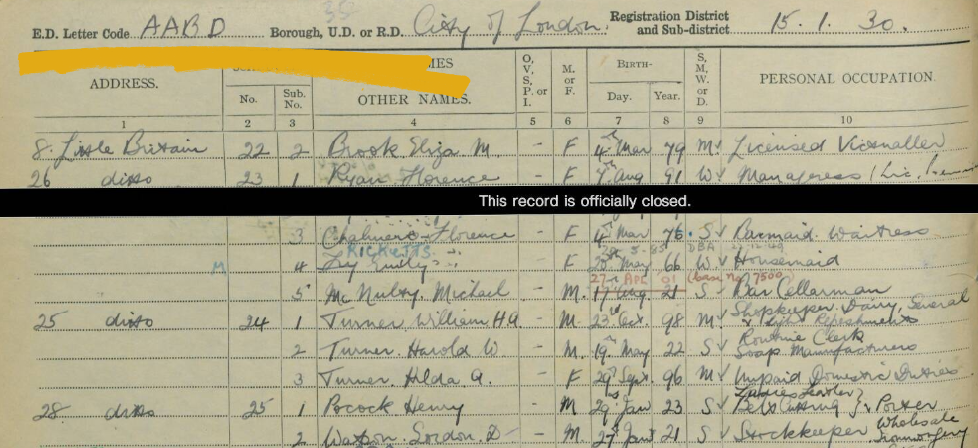 E.D. Letter Code AABD Borough, U.D. or R.D. City of London. Registration District and Sub-district 15. 1. 30.
ADDRESS. No. Sub. No. OTHER NAMES. O, V, S, P. or I. M. or F. BIRTH- Day. Year. S, M, W, or D. PERSONAL OCCUPATION.
1 2 3 4 5 6 7 8 9 10
8. Little Britain 22 2 Brook Eliza M. - F 4th Mar 79 M Licensed Victualler
26 ditto 23 1 Ryan Florence - F 7th Aug 91 W Manageress
This record is officially closed.
3 Chalmers Florence - F Mar 76 S Barmaid Waitress
RICKETTS
M 4 Emily - F May 66 W Housemaid
27 APL 01 7500
5 Mc Nulty, Michael M. 17 Aug 21 S Bar Cellarman
25 ditto 24 1 Turner William H - M. 23rd Oct. 98 M Shopkeeper Dairy, General & Light Refreshments
2 Turner. Harold W - M. 19th May 22 S Routine Clerk Soap Manufacturers
3 Turner. Hilda A. F 29th Sept 96 M Unpaid Domestic Duties
28 ditto 25 1 Pocock Henry - M 29 Jan 23 S Belt Cutting Porter
2 Watson. Gordon D - M. 27 21 S Stockkeeper Wholesale Ironmongery